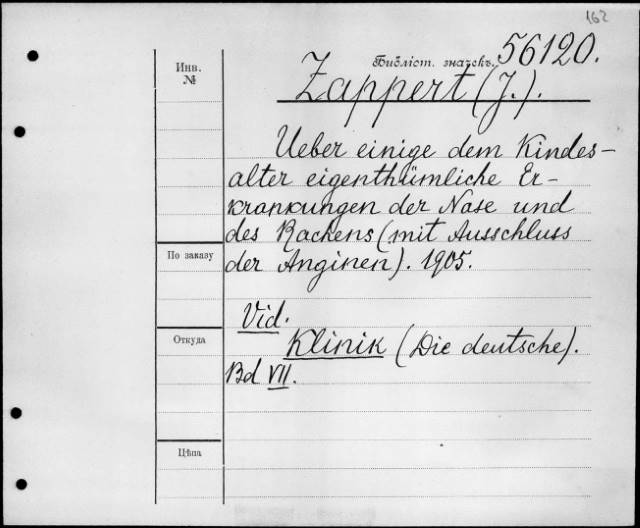 162
Библіот. значекъ. 56120.
Инв.
№
Zappert (J.).
Ueber einige dem Kindes-
alter eigenthümliche Er-
krankungen der Nase und
des Rachens (mit Ausschluss
По заказу
der Anginen). 1905.
Vid.
Откуда
Klinik (Die deutsche).
Bd VII.
Цѣна